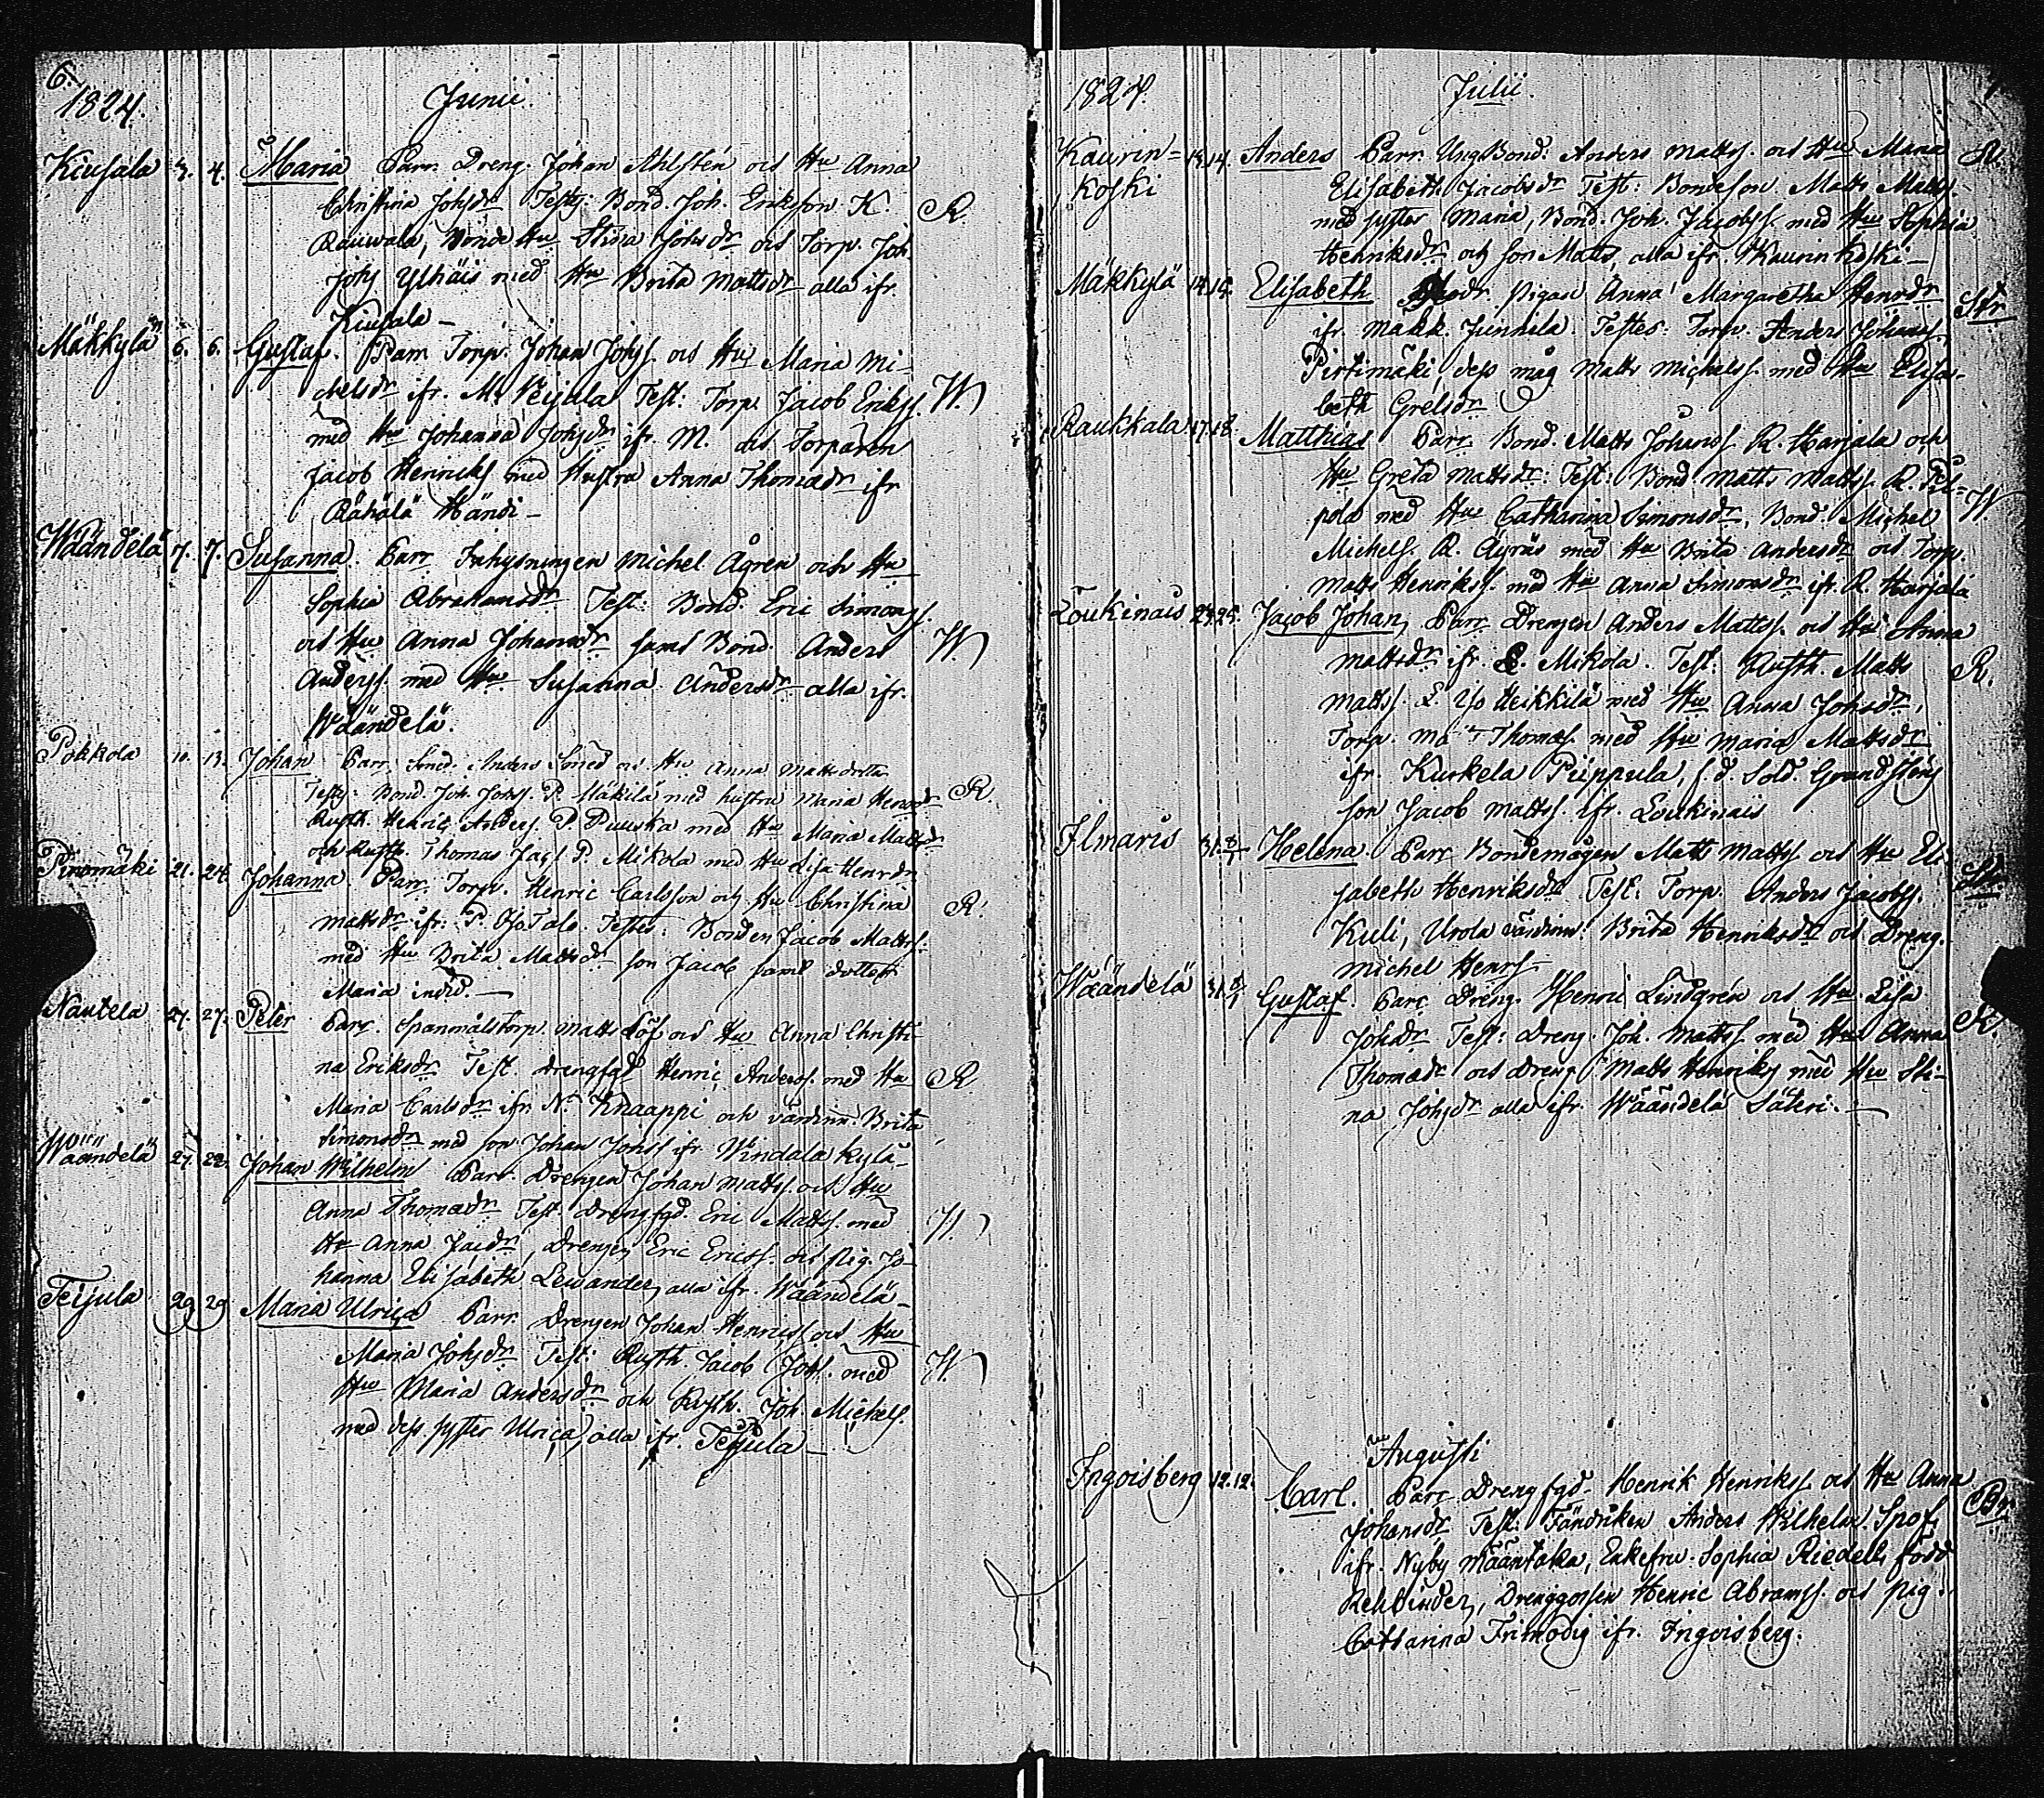 6.
1824. Junii.
Kiusala 3. 4. Maria Parr. Dreng. Johan Ahlstén och Hu Anna
Christina Johsdr Testes: Bond. Joh. Erikson K. R.
Rauwala, Bonde Hu Stina Johsdr och Torp. Joh.
Johs Ylhäis med Hu Brita Mattsdr alla ifr.
Kiusala
Mäkkylä 6. 6. Gustaf. Parr Torp. Johan Johss. och Hu Maria Mi-
chelsdr ifr. M. Test: Torp. Jacob Erikss. W.
med Hu Johanna Johsdr ifr M. och Torparen
Jacob Henrickss med Hustru Anna Thomadr ifr
Rähälä Händi
Wäändelä 7. 7. Susanna. Parr Inhysningen Michel Ågren och Hu
Sophia Abrahamsdr Test: Bond. Eric Simonss.
och Hu Anna Johansdr samt Bond. Anders W.
Anderss. med Hu Susanna Andersdr alla ifr.
Wäändelä.
Pokkola 10. 13. Johan Parr. Anders och Hu Anna Mattsdotter
Test: Bond. Joh. Johss. P. Mäkilä med hustru Maria Henrsdr R.
Rusth. Henric Anderss. P. Puuska med Hu Maria Mattsdr
och Rusth. Thomas P. Mikola med Hu Lisa Henrdr
21. 24. Johanna Parr. Torp. Henric Carlsson och Hu Christina
Mattsdr ifr. P. Testes: Bonden Jacob Mattss. R.
med Hu Brita Mattsdr son Jacob samt dotter
Maria
Nautela 27. 27. Peter Parr. Spanmålstorp. Matts Löf och Hu Anna Christi-
na Eriksdr Test drengfgd Henric Anderss. med Hu R
Maria Carlsdr ifr. N. Knaappi och värdinn. Brita
Simonsdr med son Johan Johss ifr. Windala kylä
Wäändelä 27. 28. Johan Wilhelm Parr. Drengen Johan Mattss. och Hu
Anna Thomadr Test. drengfgd. Eric Mattss. med W.
Hu Anna Jacdr, Drengen Eric Ericss. och pig. Jo-
hanna Elisabeth Lewander, alla ifr. Wäändelä
Teijula 29 29 Maria Ulrica Parr. Drengen Johan Henricss. och Hu
Maria Johsdr Test: Rusth. Jacob Johss. med W.
Hu Maria Andersdr och Rusth. Joh. Michelss.
med dess syster Ulrica, alla ifr. Teijula
1824. Julii.
Kaurin= 13. 14. Anders Parr. Ung Bond: Anders Mattss. och Hu Maria R.
koski Elisabeth Jacobsdr Test: Bondeson Matts Mattss.
med syster Maria, Bond. Joh. Jacobss. med Hu Sophia
Henriksdr och son Matts, alla ifr. Kaurinkoski
Mäkkylä 14. 15. Elisabeth Pigan Anna Margaretha Henrdr Str
ifr. Mäkk. Junnila. Testes: Torp. Anders Johanss.
Pirtimäki, dess måg Matts Michelss. med Hu Elisa-
beth Grelsdr
Raukkala 17. 18. Matthias Parr Bond. Matts Johanss. R. Harjala och
Hu Greta Mattsdr. Test: Bond Matts Mattss. R. Pil-
pola med Hu Catharina Simonsdr, Bond. Michel W.
Michelss. R. Äyräs med Hu Brita Andersdr och Torp.
Matts Henrikss. med Hu Anna Simonsdr ifr. R. Harjala
Loukinais 23. 25. Jacob Johan, Parr Drengen Anders Mattss. och Hu Anna
Mattsdr ifr. L. Mikola. Test: Rusth. Matts R.
Mattss. L. Iso Heikkilä med Hu Anna Johsdr,
Torp. Thomass med Hu Maria Mattsdr
ifr. Kurkela Piippula, f. d. Sold. Grandsténs
son Jacob Mattss. ifr. Loukinais
Ilmaris 31. 8/1 Helena. Parr Bondemågen Matts Mattss. och Hu Eli- Str.
sabeth Henriksdr Test: Torp. Anders Jacobss.
Kuli, Urola värdinn. Brita Henriksdr och Dreng.
Michel Henrss.
Wäändelä 31. 8/1 Gustaf. Parr Dreng. Henric Lindgrén och Hu Lisa
Johsdr. Test: Dreng. Joh. Mattss. med Hu Anna R.
Thomadr och dreng Matts Henrikss med Hu Sti-
na Johsdr alla ifr. Wäändelä Säteri.
Augusti
Ingoisberg 12. 12. Carl. Parr Drengfgd. Henrik Henrikss och Hu Anna
Johansdr Test: Fändriken Anders Wilhelm Spof, Br.
ifr. Nyby Määntaka, Enkefru Sophia Riedell, född
Rehbinder, Drenggossen Henric Abramss. och pig.
Catharina Frimodig ifr. Ingoisberg.